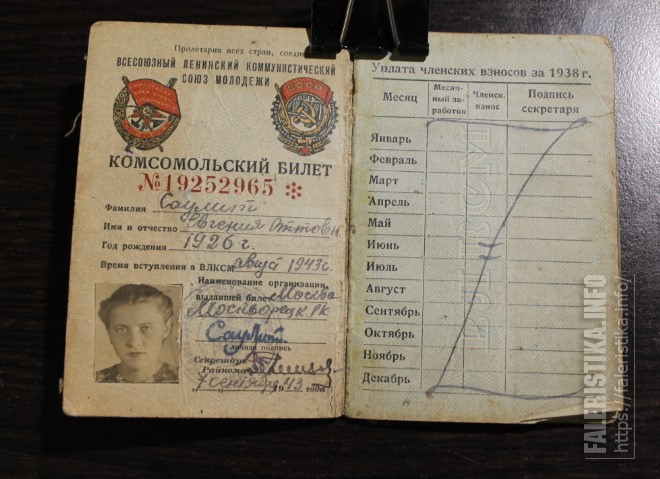 Пролетарии всех стран, соеди
ВСЕСОЮЗНЫЙ ЛЕНИНСКИЙ КОММУНИСТИЧЕСКИЙ
СОЮЗ МОЛОДЕЖИ
СССР
КОМСОМОЛЬСКИЙ БИЛЕТ
№19252965 *
Фамилия Саулит
Имя и отчество Евгения Оттовн
Год рождения 1926 г.
Время вступления в ВЛКСМ август 1943 г.
Наименование организации,
выдавшей билет Москва
Москворецк. РК
Саулит.
Личная подпись
Секретарь
Райкома
7 сентября 1943 года
Уплата членских взносов за 1938 г.
Месяц
Месяч-
ный за-
работок
Членск.
взнос
Подпись
секретаря
Январь
Февраль
Март
Апрель
Май
Июнь
Июль
Август
Сентябрь
Октябрь
Ноябрь
Декабрь
FALERISTIKA.INFO
https://faleristika.info/